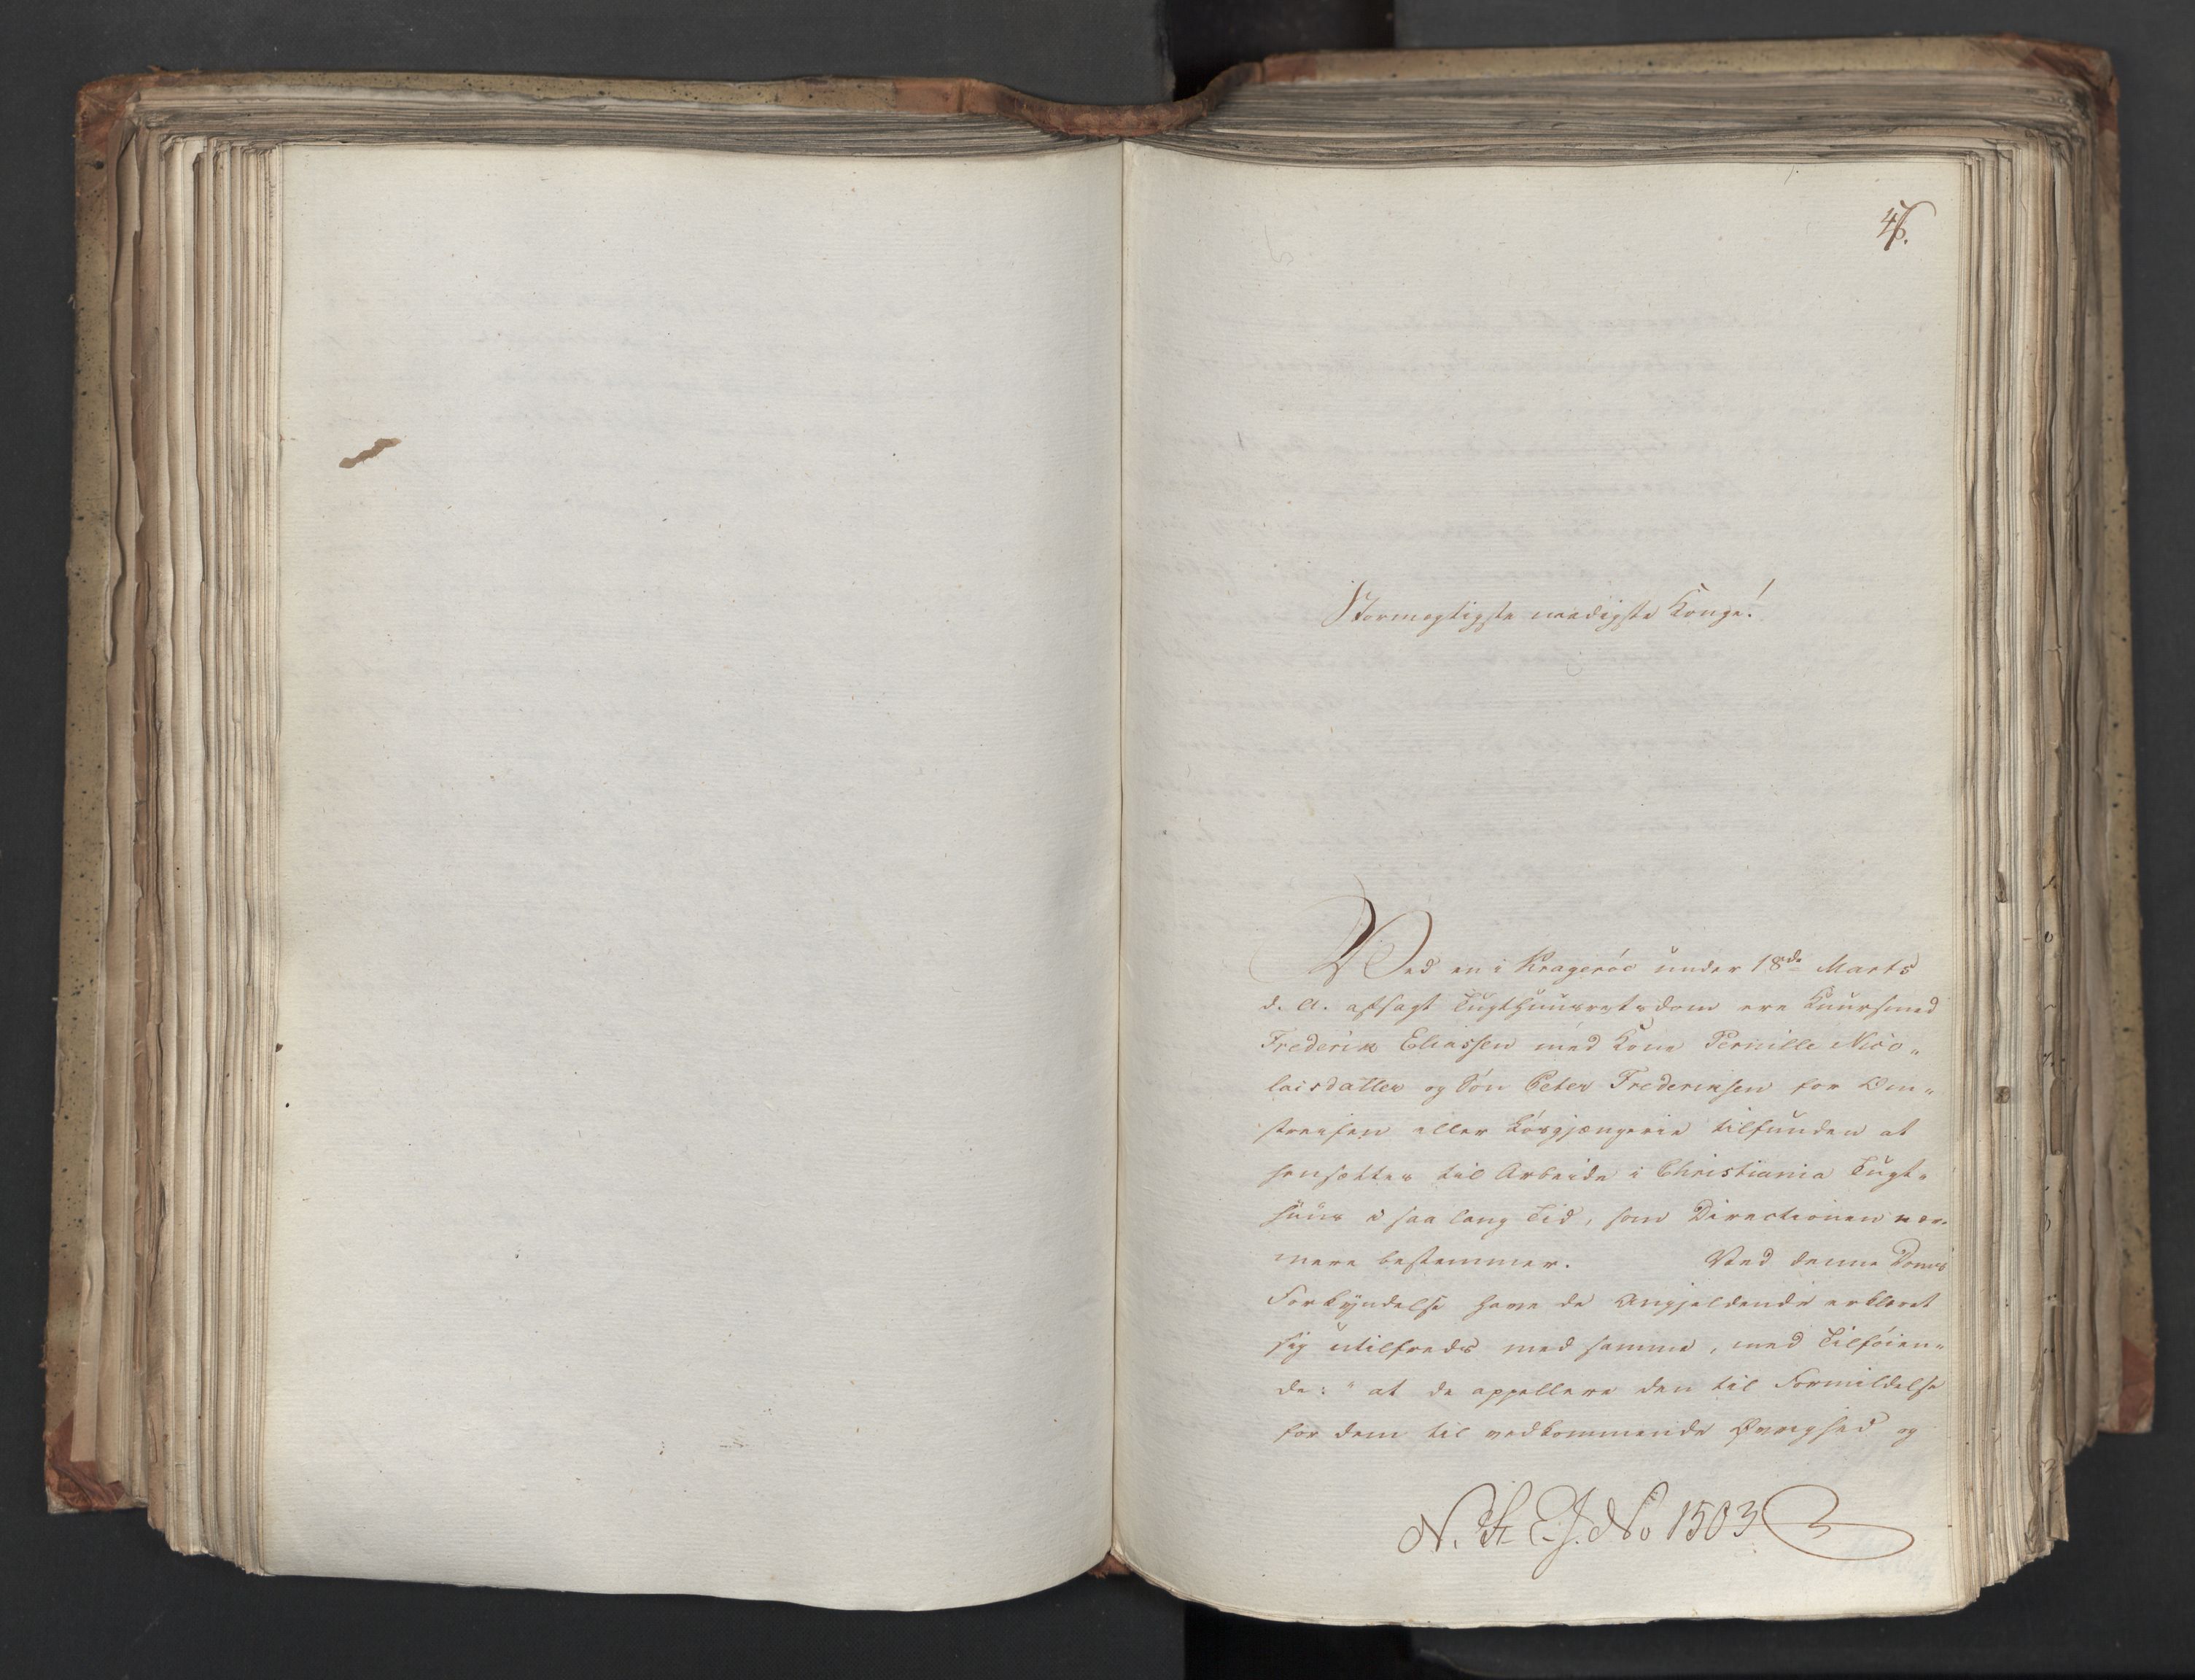 46.
Stormegtigste naadigste Konge!
Ved en i Kragerøe under 18de Marts
d. A. afsagt Tugthuusretsdom ere Knursmed
Frederik Eliassen med Kone Pernille Nico„
laisdatter og Søn Peter Frederiksen for Om„
streifen eller Løsgjængerie tilfunden at
hensættes til Arbeide i Christiania Tugt„
huus i saa lang Tid, som Directionen nær„
mere bestemmer. Ved denne Doms
Forkyndelse have de Angjeldende erklæret
sig utilfreds med samme, med Tilføien„
de: "at de appellere den til Formildelse
for dem til vedkommende Øvrighed og
N. St. E. J. No 1503